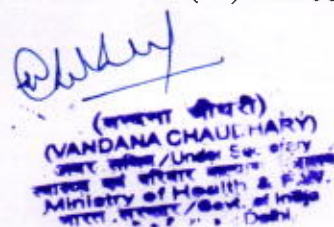 (वन्दना चौधरी)
(VANDANA CHAUDHARY)
अवर सचिव/Under Secretary
स्वास्थ्य एवं परिवार कल्याण
Ministry of Health & F.W.
भारत सरकार/Govt. of India
Delhi